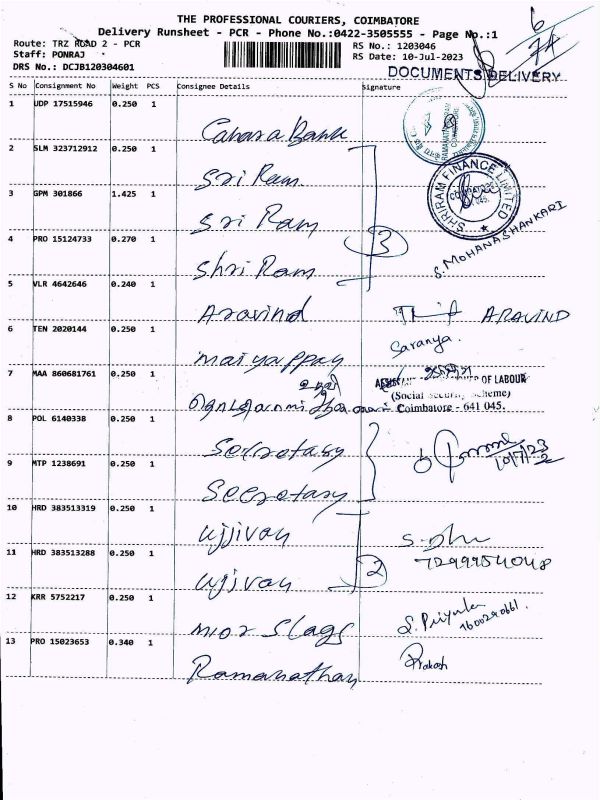 THE PROFESSIONAL COURIERS, COIMBATORE
Delivery Runsheet - PCR - Phone No.:0422-3505555 - Page No.:1
Route: TRZ ROAD 2 - PCR
Staff: PONRAJ
DRS No.: DCJB120304601
RS No.: 1203046
RS Date: 10-Jul-2023
6
74
DOCUMENTS DELIVERY
S No Consignment No Weight PCS Consignee Details Signature
1 UDP 17515946 0.250 1 Canara Bank
2 SLM 323712912 0.250 1 Sri Ram
SHRIRAM FINANCE LIMITED
3 GPM 301866 1.425 1 Sri Ram
3
4 PRO 15124733 0.270 1 Shri Ram S. MOHANASHANKARI
5 VLR 4642646 0.240 1 Aravind ARAVIND
6 TEN 2020144 0.250 1 maiyappan Saranya.
7 MAA 860681761 0.250 1
OF LABOUR
(Social Security Scheme)
Coimbatore - 641 045.
8 POL 6140338 0.250 1 Secretary
10/7/23
9 MTP 1238691 0.250 1 Secretary
10 HRD 383513319 0.250 1 ujjivan
11 HRD 383513288 0.250 1 ujjivan
2
12 KRR 5752217 0.250 1 S. Priyanka
13 PRO 15023653 0.340 1 Ramanathan Prakash